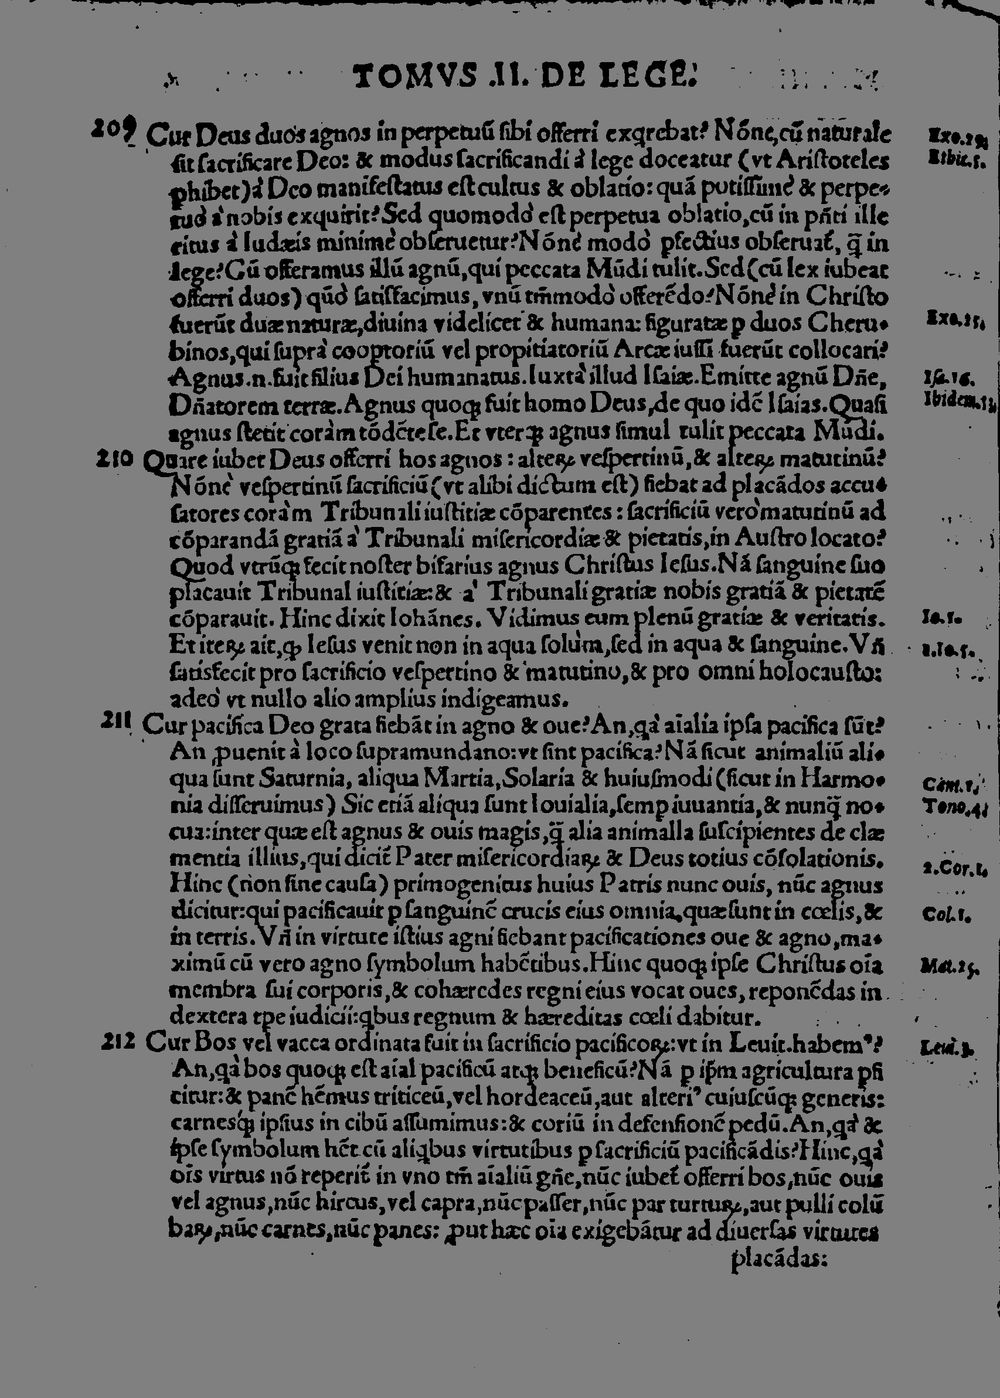 TOMVS .II. DE LEGE.
209 Cur Deus duos agnos in perpetuū sibi offerri exqrebat? Nōne, cū naturale Exo.29.
sit sacrificare Deo: & modus sacrificandi à lege doceatur (vt Aristoteles Ethic.5.
phibet) à Deo manifestatus est cultus & oblatio: quā potissimè & perpe-
tuò à nobis exquirit? Sed quomodò est perpetua oblatio, cū in pñti ille
ritus à Iudæis minimè obseruetur? Nōnè modò pfectius obseruat̃, q̃ in
lege? Cū offeramus illū agnū, qui peccata Mūdi tulit. Sed (cū lex iubeat
offerri duos) qūo satisfacimus, vnū tm̄modò offerēdo? Nōnè in Christo
fuerūt duæ naturæ, diuina videlicet & humana: figuratæ p duos Cheru- Exo.25.
binos, qui suprà cooptoriū vel propitiatoriū Arcæ iussi fuerūt collocari?
Agnus .n. fuit filius Dei humanatus. Iuxtà illud Isaiæ. Emitte agnū Dñe, Isa.16.
Dñatorem terræ. Agnus quoq; fuit homo Deus, de quo idē Isaias. Quasi Ibidem.
agnus stetit coràm tōdēte se. Et vterq; agnus simul tulit peccata Mūdi.
210 Quare iubet Deus offerri hos agnos: alterꝝ vespertinū, & alterꝝ matutinū?
Nōnè vespertinū sacrificiū (vt alibi dictum est) fiebat ad placādos accu-
satores coràm Tribunali iustitiæ cōparentes: sacrificiū verò matutinū ad
cōparandā gratiā à Tribunali misericordiæ & pietatis, in Austro locato?
Quod vtrūq; fecit noster bifarius agnus Christus Iesus. Nā sanguine suo
placauit Tribunal iustitiæ: & à Tribunali gratiæ nobis gratiā & pietatē
cōparauit. Hinc dixit Iohānes. Vidimus eum plenū gratiæ & veritatis. Io.1.
Et iterꝝ ait, q; Iesus venit non in aqua solùm, sed in aqua & sanguine. Vñ 1.Io.5.
satisfecit pro sacrificio vespertino & matutino, & pro omni holocausto:
adeò vt nullo alio amplius indigeamus.
211 Cur pacifica Deo grata fiebāt in agno & oue? An, qà aīalia ipsa pacifica sūt?
An puenit à loco supramundano: vt sint pacifica? Nā sicut animaliū ali-
qua sunt Saturnia, aliqua Martia, Solaria & huiusmodi (sicut in Harmo- Cant.1.
nia disseruimus) Sic etiā aliqua sunt Iouialia, semp iuuantia, & nunq̃ no- Tono.4.
cua: inter quæ est agnus & ouis magis, q̃ alia animalla suscipientes de clæ
mentia illius, qui dicit̃ Pater misericordiaꝝ & Deus totius cōsolationis. 2.Cor.1.
Hinc (non sine causa) primogenitus huius Patris nunc ouis, nūc agnus
dicitur: qui pacificauit p sanguinē crucis eius omnia, quæ sunt in cœlis, & Col.1.
in terris. Vñ in virtute istius agni fiebant pacificationes oue & agno, ma-
ximū cū vero agno symbolum habētibus. Hinc quoq; ipse Christus oīa Mat.25.
membra sui corporis, & cohæredes regni eius vocat oues, reponēdas in
dextera tpe iudicii: qbus regnum & hæreditas cœli dabitur.
212 Cur Bos vel vacca ordinata fuit in sacrificio pacificoꝝ: vt in Leuit. habem⁹? Leui.3.
An, qà bos quoq; est aīal pacificū atq; beneficū? Nā p ip̄m agricultura pfi
citur: & panē hēmus triticeū, vel hordeaceū, aut alteri⁹ cuiuscūq; generis:
carnesq; ipsius in cibū assumimus: & coriū in defensionē pedū. An, qà &
ipse symbolum hēt cū aliqbus virtutibus p sacrificiū pacificādis? Hinc, qà
oīs virtus nō reperit̃ in vno tm̄ aīaliū gñe, nūc iubet̃ offerri bos, nūc ouis
vel agnus, nūc hircus, vel capra, nūc passer, nūc par turturꝝ, aut pulli colū
baꝝ, nūc carnes, nūc panes: put hæc oīa exigebātur ad diuersas virtutes
placādas: